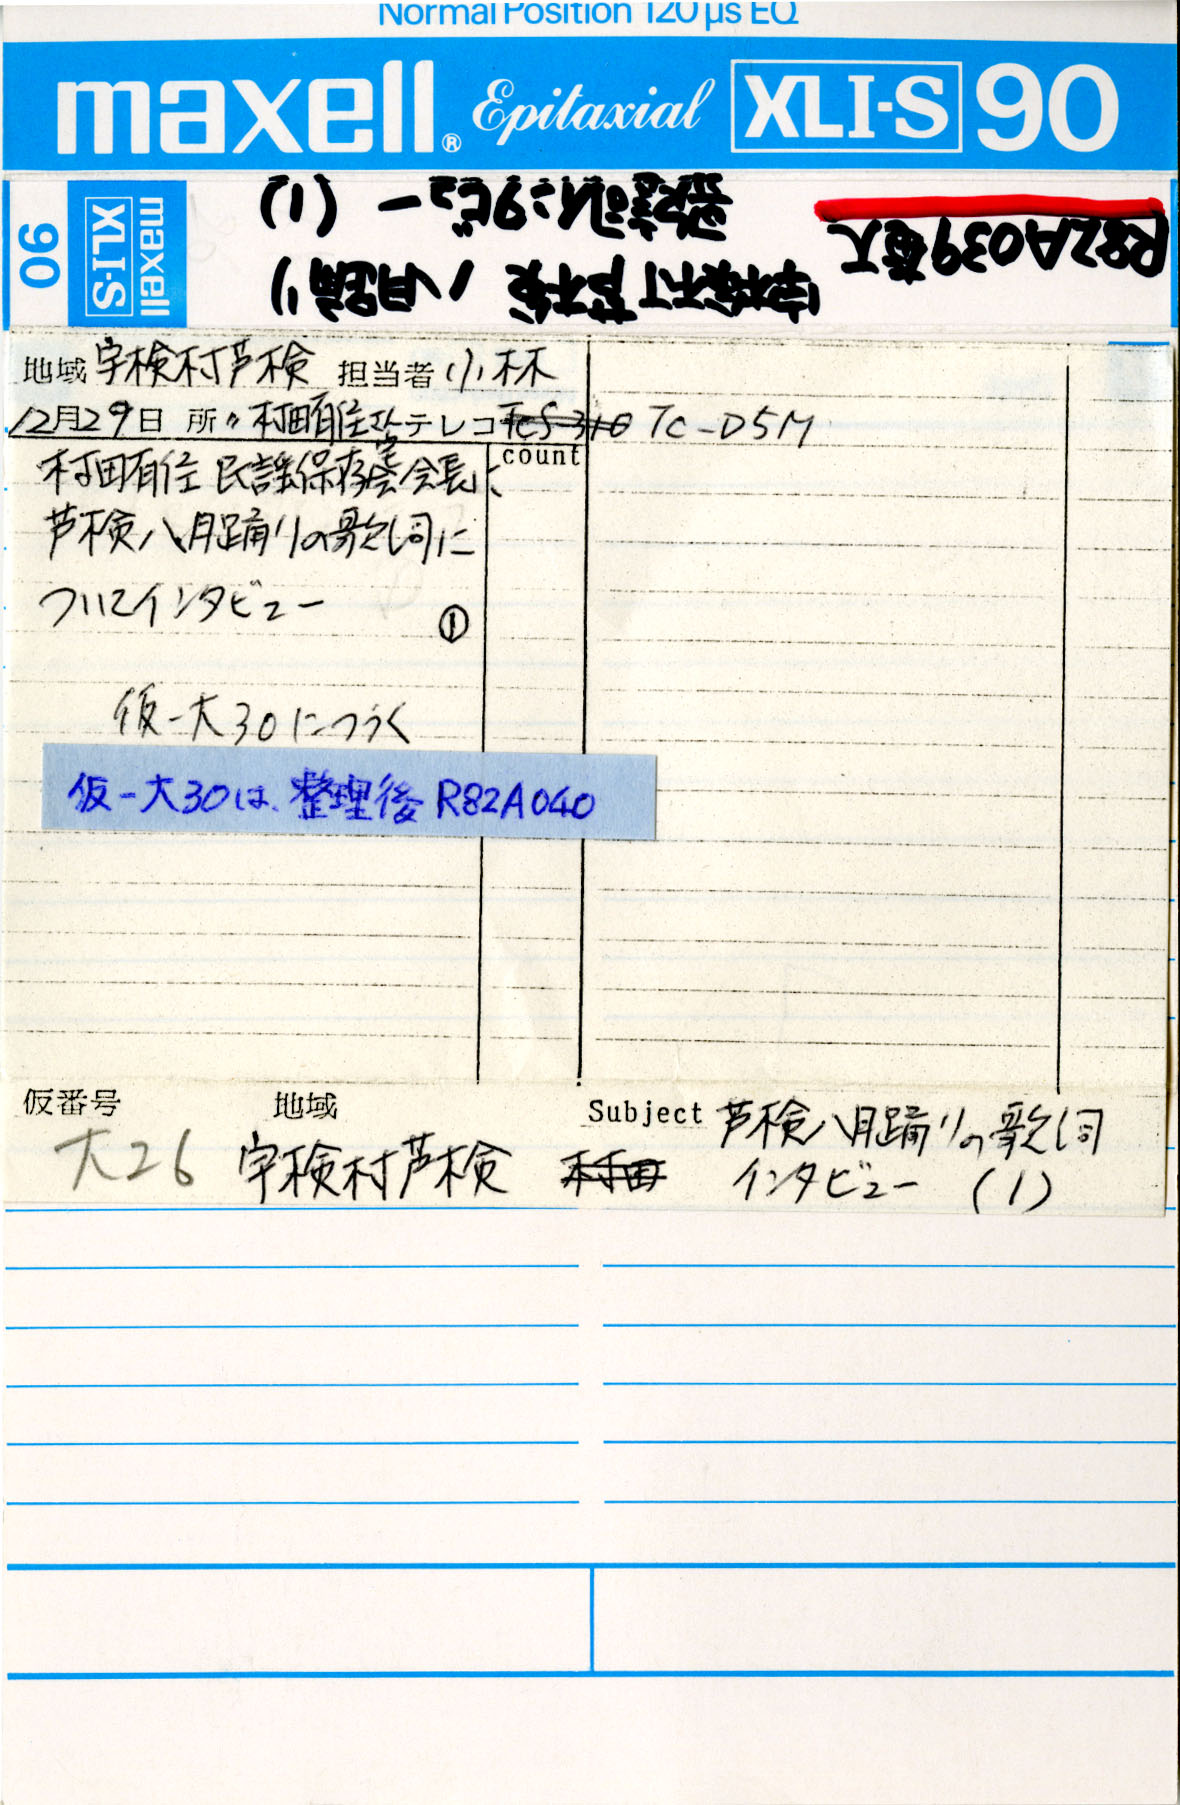 Normal Position 120 μs EQ
maxell® Epitaxial XLI-S 90
maxell XLI-S 90
R82A039
宇検村芦検 八月踊り
歌詞インタビュー (1)
地域 宇検村芦検 担当者 小林
12月29日 所〃 村田有佳 テレコ TCS-310 TC-D5M
count
村田有佳 民謡保存会会長に、
芦検八月踊りの歌詞に
ついてインタビュー ①
仮-大30につづく
仮-大30は、整理後 R82A040
仮番号 地域 Subject 芦検八月踊りの歌詞
大26 宇検村芦検 村田 インタビュー (1)